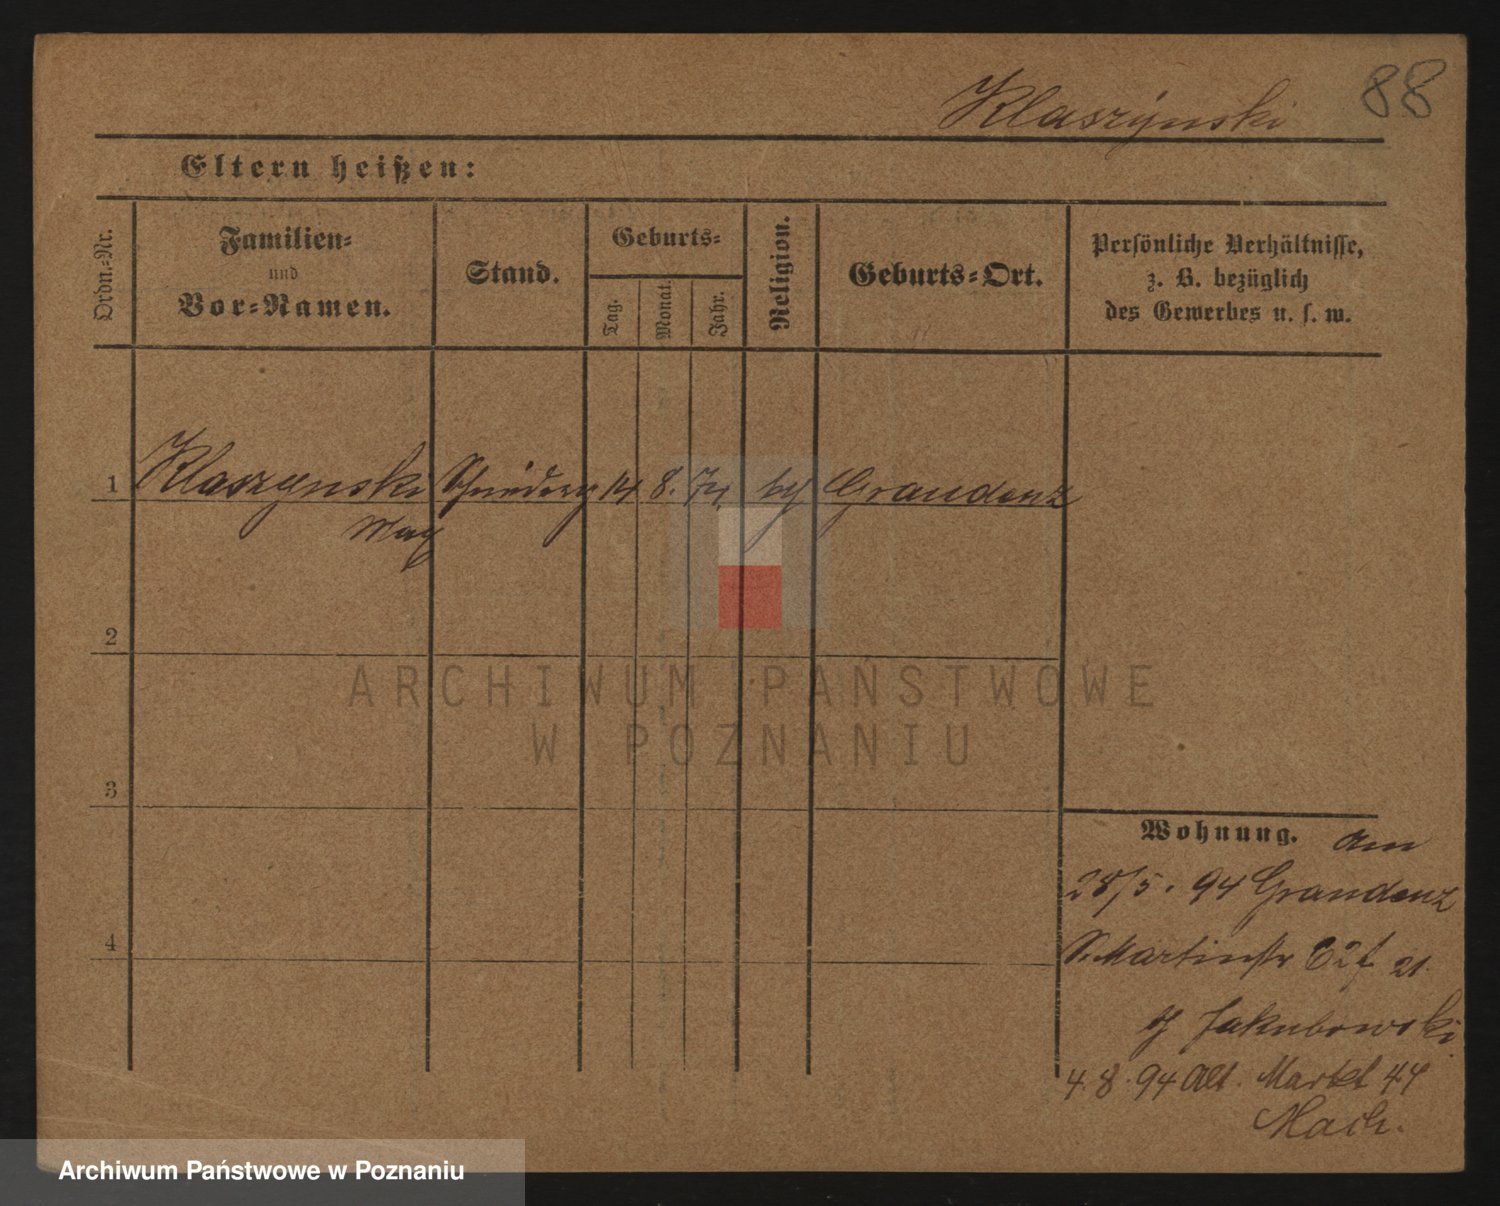 Klaszÿnski 88
Eltern heißen:
Ordn.-Nr.
Familien-
und
Vor-Namen.
Stand.
Geburts-
Tag.
Monat.
Jahr.
Religion.
Geburts-Ort.
Persönliche Verhältnisse,
z. B. bezüglich
des Gewerbes u. s. w.
1 Klaszynski 14 8. 74 Graudenz
Max
2
ARCHIWUM PAŃSTWOWE
W POZNANIU
3
Wohnung. Am
28/5. 94 Graudenz
S. Martinstr 21.
Jakubowski
4
4.8.94 Alt. Markt 44
Archiwum Państwowe w Poznaniu